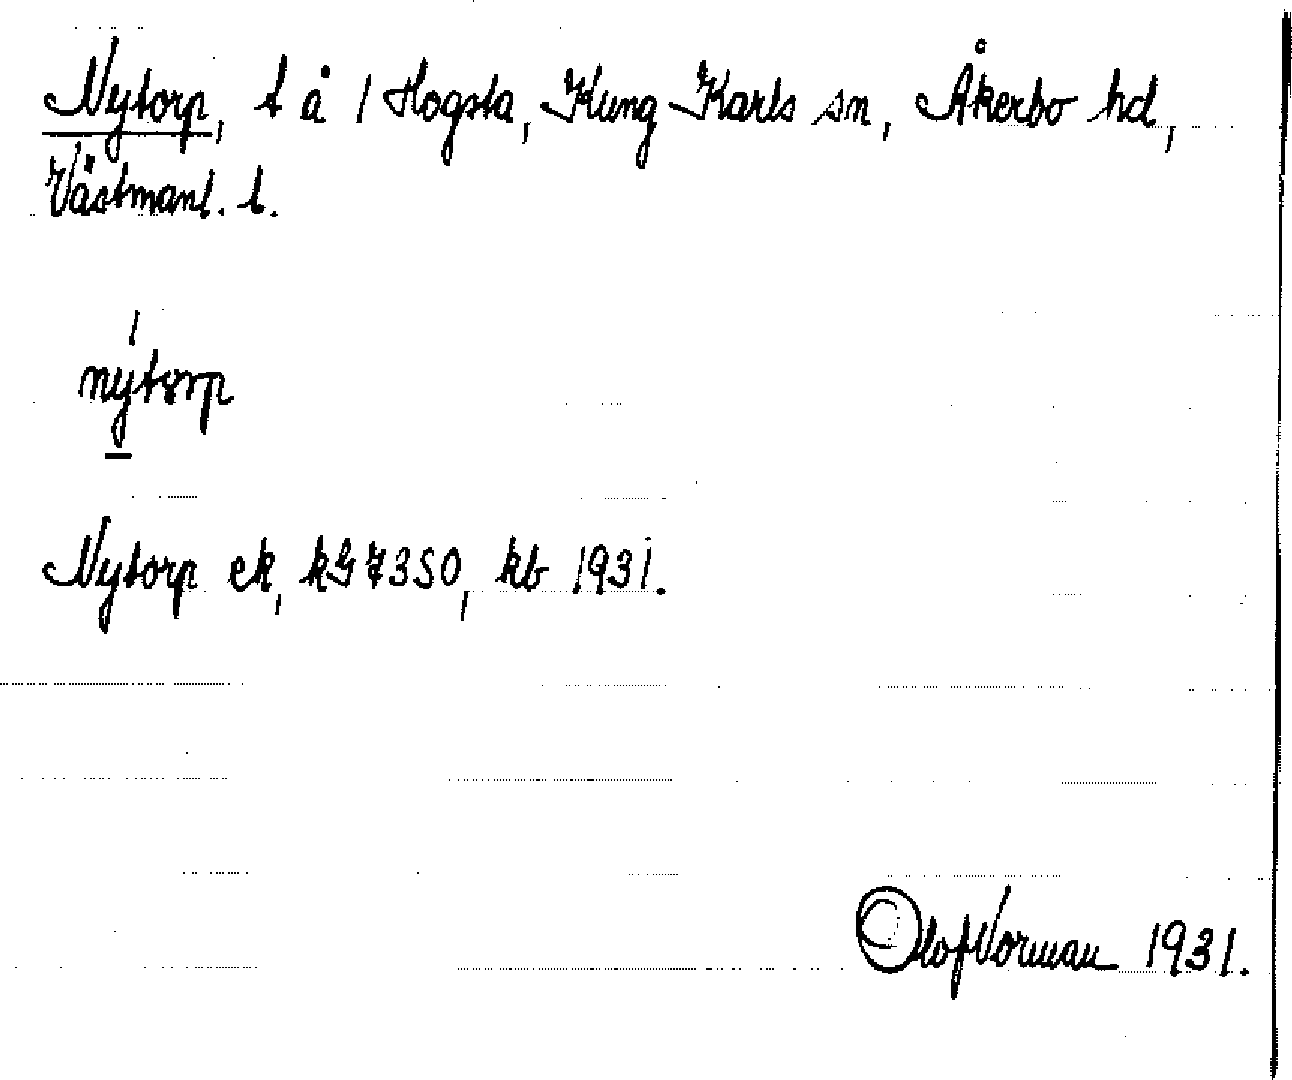 Nytorp, t å 1 Hogsta, Kung Karls sn, Åkerbo hd,
Västmanl. l.
nytorp
Nytorp ek, kG 7350, kb 1931.
Olof Vorman 1931.